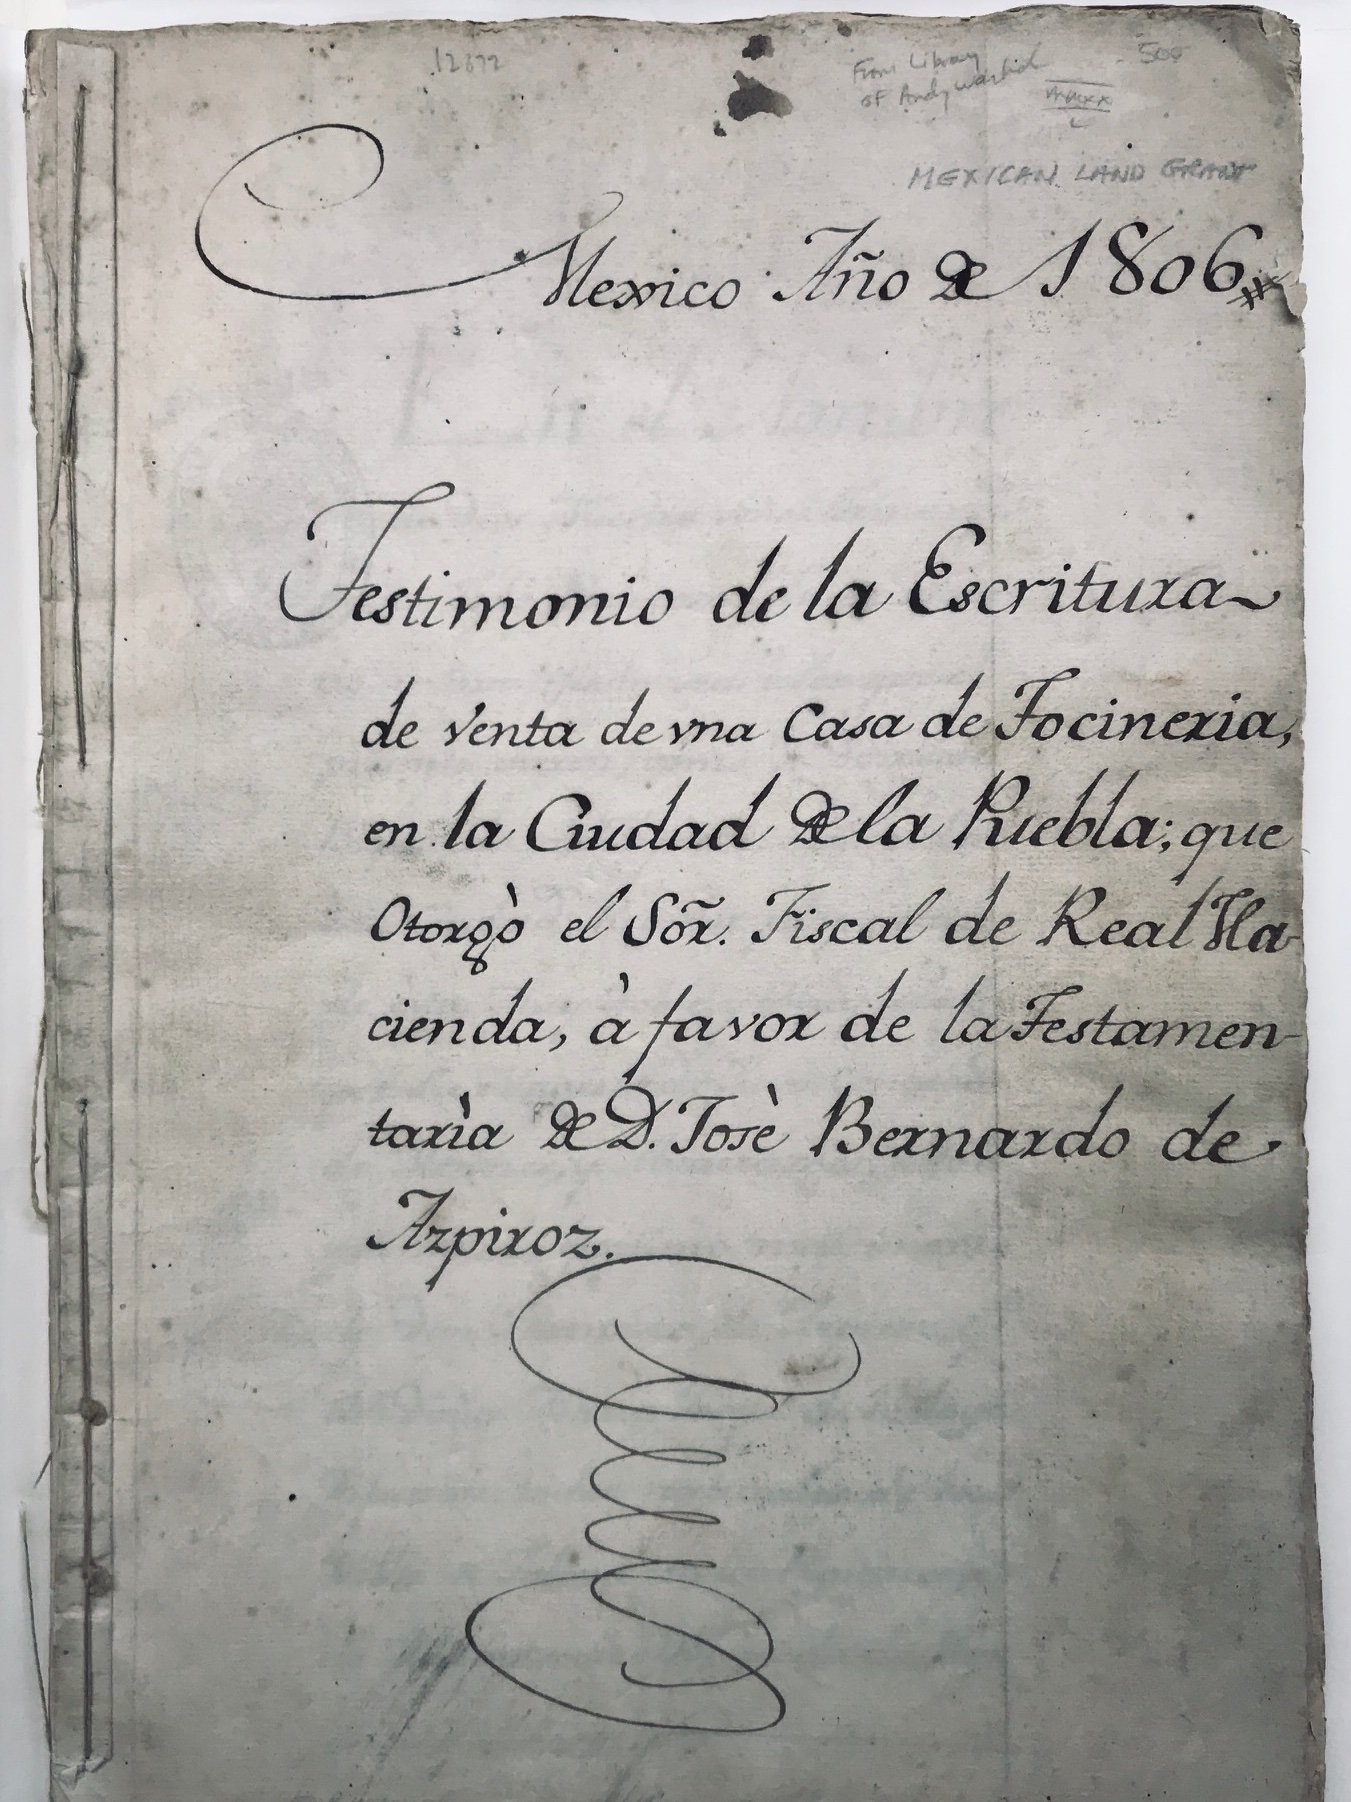 12672
From Library
of Andy Warhol
500
MEXICAN LAND GRANT
Mexico Año de 1806
Testimonio de la Escritura
de venta de vna Casa de Tocineria,
en la Ciudad de la Puebla; que
Otorgò el Sõr. Fiscal de Real Ha-
cienda, à favor de la Testamen-
tarìa de D. Josè Bernardo de
Azpiroz.